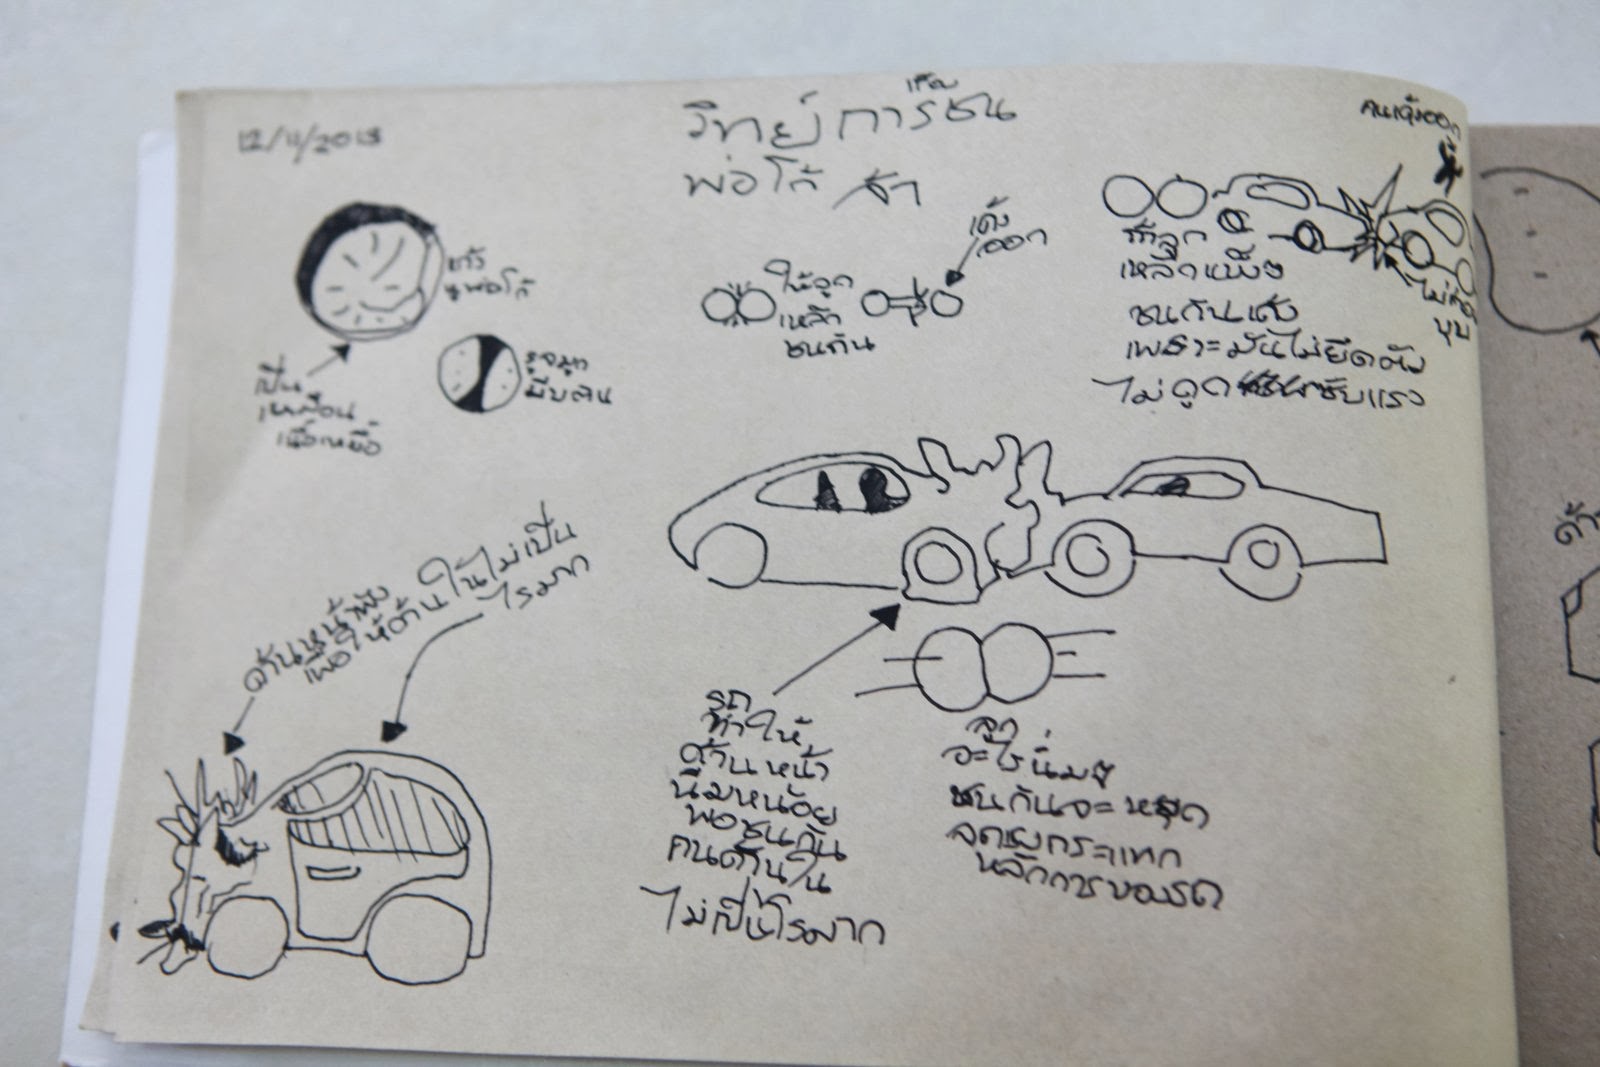 12/11/2013
วิทย์ การชน
เกิด
พ่อโก้ ช้า
คนเด้งออก
แก้ว
หูพ่อโก้
เป็น
เหมือน
เนื้อเหยื่อ
รูจมูก
มีบสน
ให้ลูก
เหล็ก
ชนกัน
เด้ง
ออก
ถ้าลูก
เหล็กแข็งๆ
ชนกันแล้ว
เพราะมันไม่ยืดหยุ่น
ไม่ดูดซับแรง
ไม่ค่อย
ยุบ
ด้านหน้าพัง
เพื่อให้ด้านในไม่เป็น
ไรมาก
รถ
ทำให้
ด้านหน้า
นิ่มหน่อย
พอชนกัน
คนด้านใน
ไม่เป็นไรมาก
ลูก
อะไรนิ่มๆ
ชนกันจะหยุด
ลดแรงกระแทก
หลักการของรถ